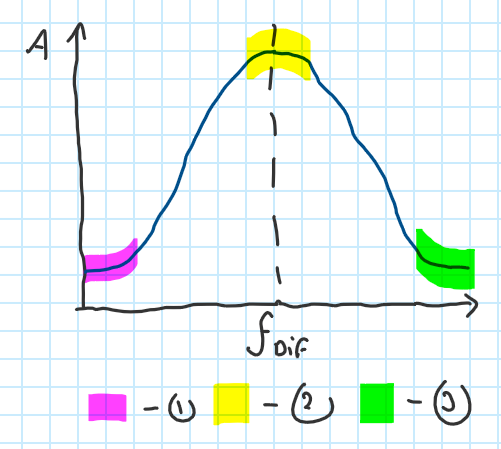 A
f DIF
- ① - ② - ③